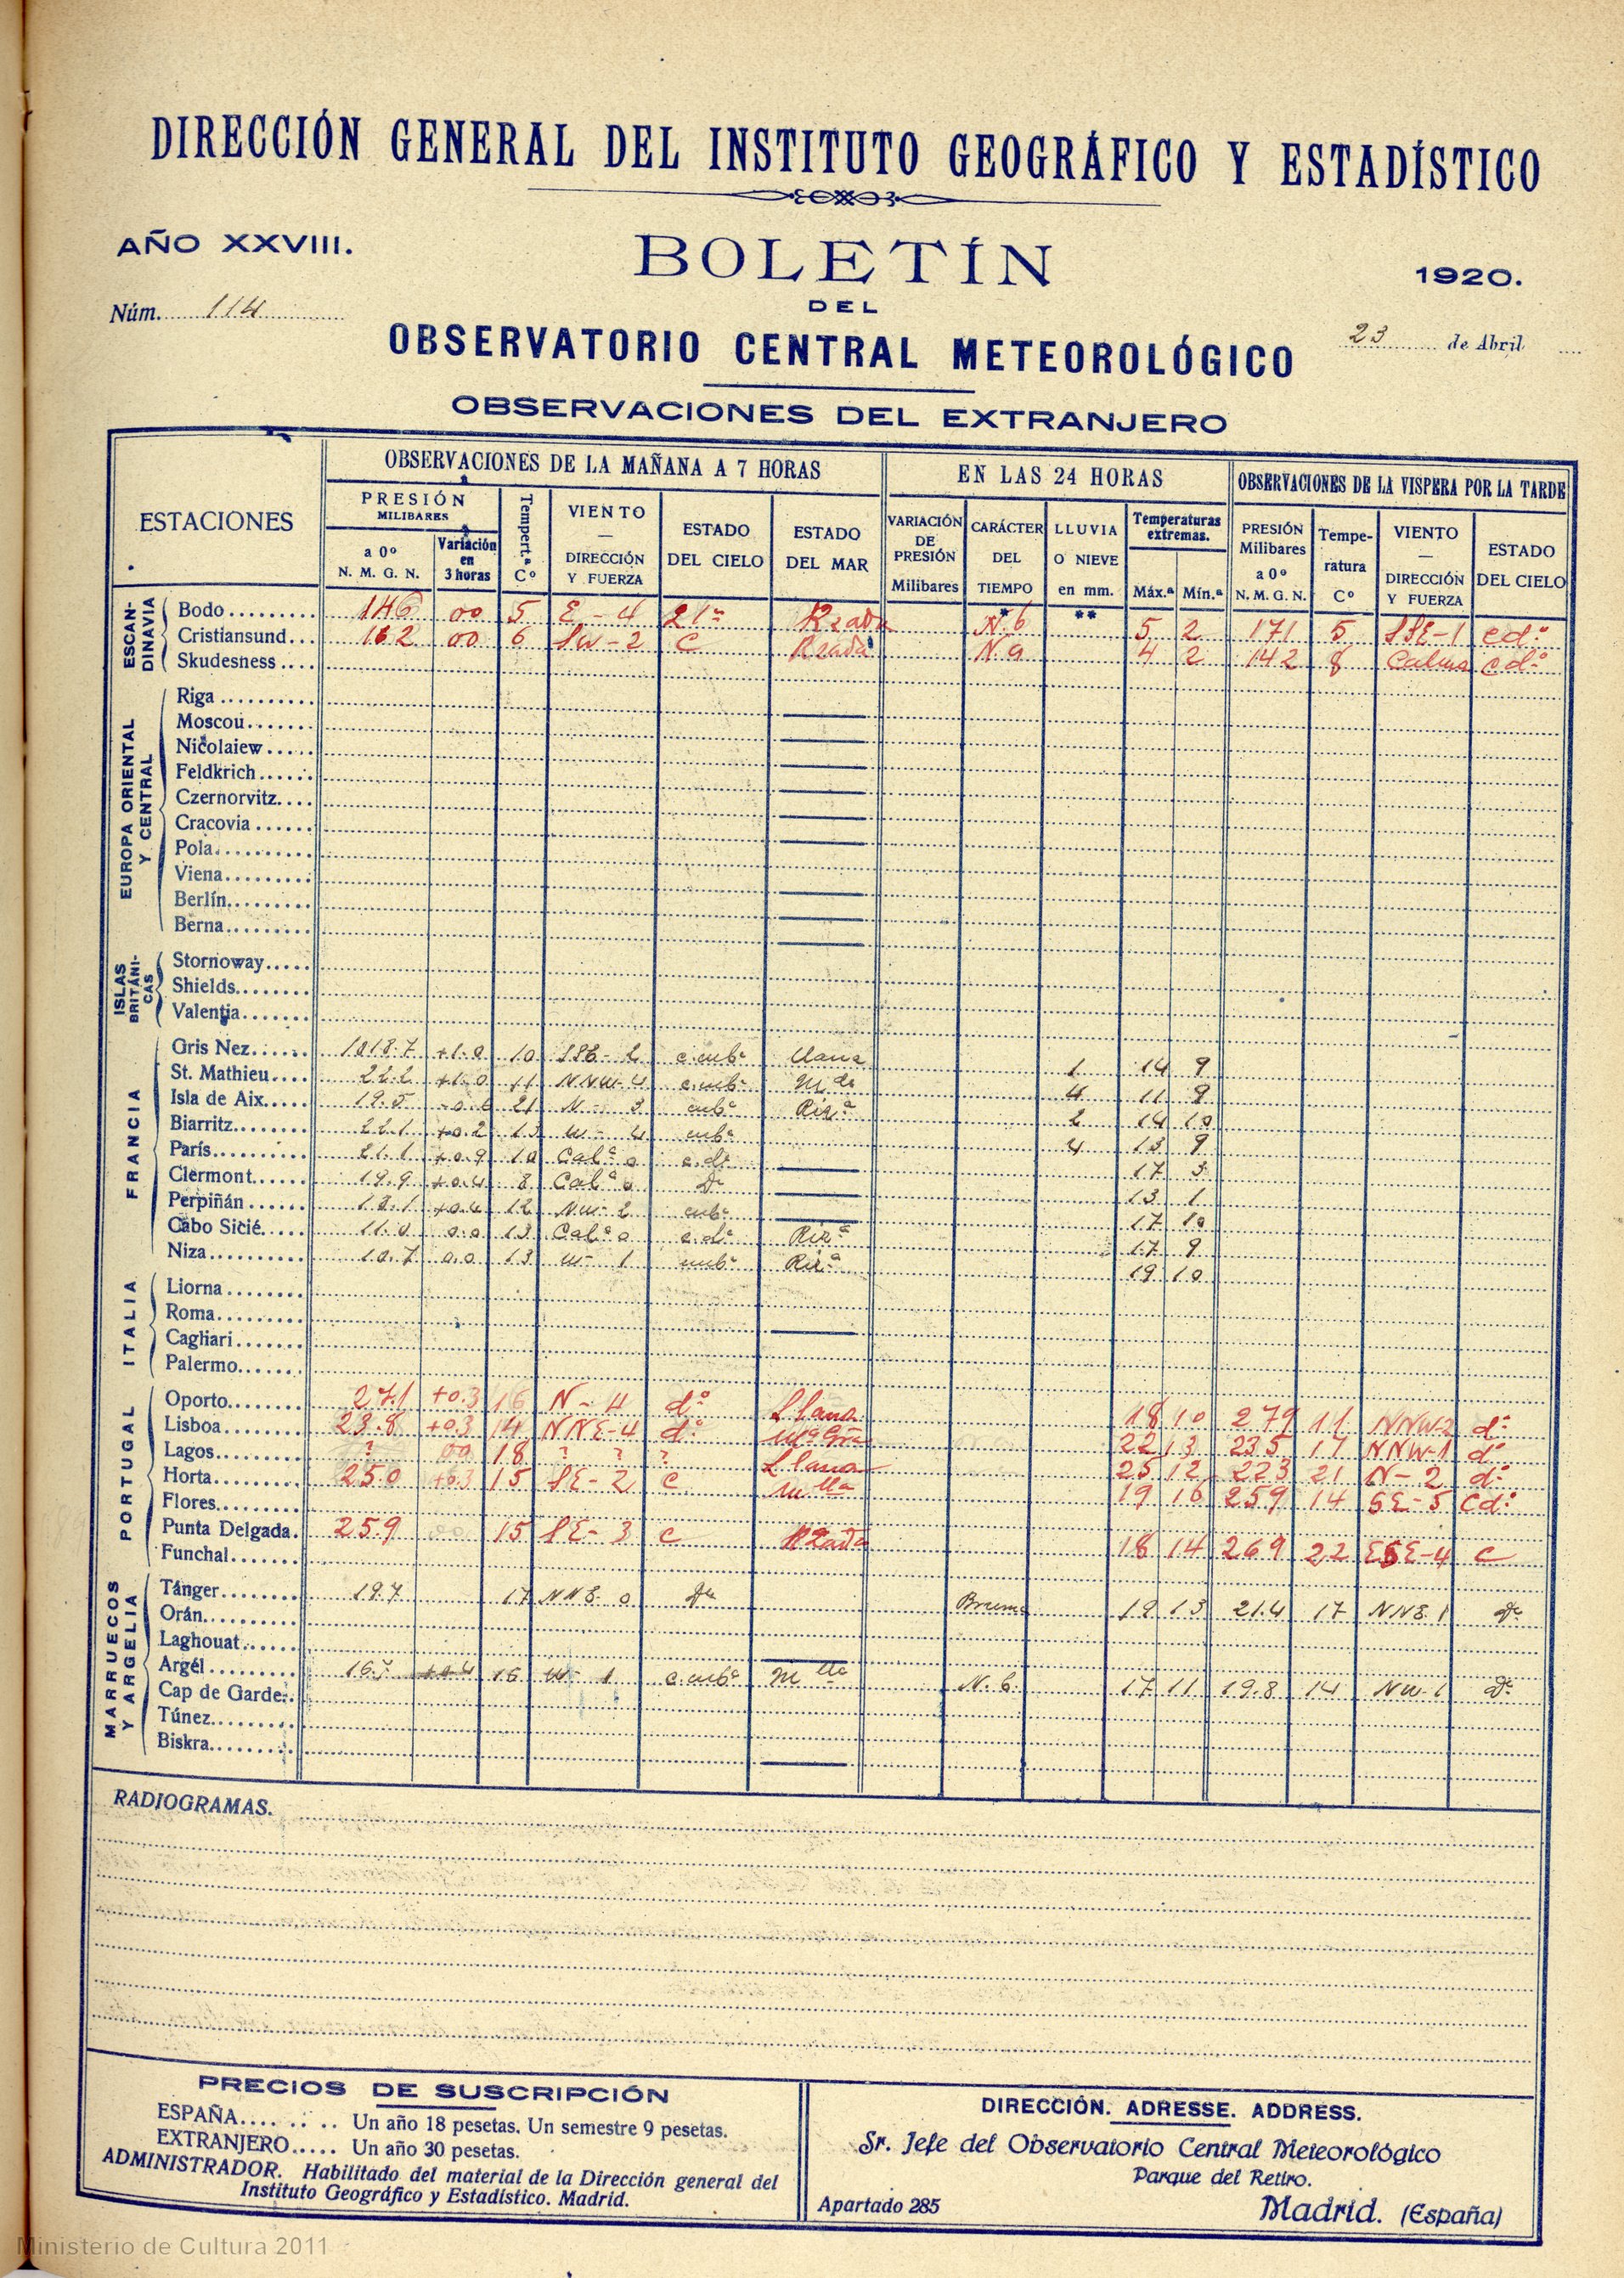 DIRECCIÓN GENERAL DEL INSTITUTO GEOGRÁFICO Y ESTADÍSTICO
AÑO XXVIII.
BOLETÍN
1920.
Núm. 114
DEL
OBSERVATORIO CENTRAL METEOROLÓGICO
23 de Abril
OBSERVACIONES DEL EXTRANJERO
ESTACIONES
OBSERVACIONES DE LA MAÑANA A 7 HORAS
EN LAS 24 HORAS
OBSERVACIONES DE LA VISPERA POR LA TARDE
PRESIÓN MILIBARES
a 0º N. M. G. N.
Variación en 3 horas
Tempert.ª Cº
VIENTO — DIRECCIÓN Y FUERZA
ESTADO DEL CIELO
ESTADO DEL MAR
VARIACIÓN DE PRESIÓN Milibares
CARÁCTER DEL TIEMPO
LLUVIA O NIEVE en mm.
Temperaturas extremas.
Máx.ª Mín.ª
PRESIÓN Milibares a 0º N. M. G. N.
Tempe-ratura Cº
VIENTO — DIRECCIÓN Y FUERZA
ESTADO DEL CIELO
* **
ESCAN-DINAVIA
Bodo 146 00 5 E - 4 N. 6 5 2 171 5 SSE-1 cdº
Cristiansund 162 00 6 SW - 2 C Rzada 4 2 142 8 Calma cdº
Skudesness
EUROPA ORIENTAL Y CENTRAL
Riga
Moscou
Nicolaiew
Feldkrich
Czernorvitz
Cracovia
Pola
Viena
Berlín
Berna
ISLAS BRITÁNI-CAS
Stornoway
Shields
Valentia
FRANCIA
Gris Nez 1018.7 +1.0 10 SSE - 2 c.cubº Llana 1 14 9
St. Mathieu 22.2 +1.0 11 NNW-4 c.cubº 4 11 9
Isla de Aix 19.5 21 N - 3 cubº Rizª 2 14 10
Biarritz 22.1 +0.2 13 W - 4 cubº 4 13 9
París 21.1 +0.9 10 Calª 0 c.dº 17 3
Clermont 19.9 +0.4 8 Calª 0 Dº 13 1
Perpiñán 18.1 +0.4 12 NW-2 cubº 17 10
Cabo Sicié 11.0 0.0 13 Calª 0 c.dº Rizª 17 9
Niza 10.7 0.0 13 W - 1 cubº Rizª 19 10
ITALIA
Liorna
Roma
Cagliari
Palermo
PORTUGAL
Oporto 271 +0.3 16 N - 4 dº Llana 18 10 279 11 NNW-2 dº
Lisboa 23.8 +0.3 14 NNE-4 dº 22 13 235 17 NNW-1 dº
Lagos ? 00 18 ? ? ? Llana 25 12 223 21 N - 2 dº
Horta 25.0 +0.3 15 SE - 2 C mlla 19 16 259 14 SE-5 Cdº
Flores
Punta Delgada 259 15 SE - 3 C Rzada 18 14 269 22 ESE-4 C
Funchal
MARRUECOS Y ARGELIA
Tánger 19.7 17 NNE 0 Dº Bruma 19 13 21.4 17 NNE. 1 Dº
Orán
Laghouat
Argél 16 W - 1 c.cubº mlla N. 6 17 11 19.8 14 NW-1 Dº
Cap de Garde
Túnez
Biskra
RADIOGRAMAS.
PRECIOS DE SUSCRIPCIÓN
ESPAÑA Un año 18 pesetas. Un semestre 9 pesetas.
EXTRANJERO Un año 30 pesetas.
ADMINISTRADOR. Habilitado del material de la Dirección general del
Instituto Geográfico y Estadístico. Madrid.
DIRECCIÓN. ADRESSE. ADDRESS.
Sr. Jefe del Observatorio Central Meteorológico
Parque del Retiro.
Apartado 285
Madrid. (España)
Ministerio de Cultura 2011